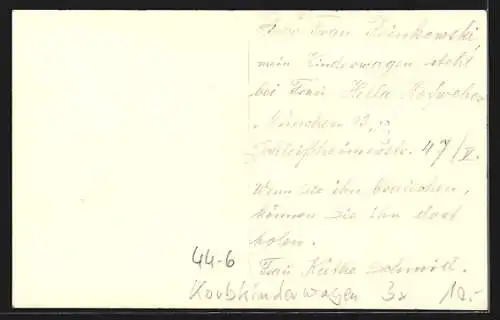 Frau Pinkowski
mein Kinderwagen steht
bei Frau Hella
München 13,
Schleißheimerstr. 47/II.
Wenn sie ihn brauchen,
können sie ihn dort
holen.
Frau Käthe Schmidt.
44-6
Korbkinderwagen 3x 10.-